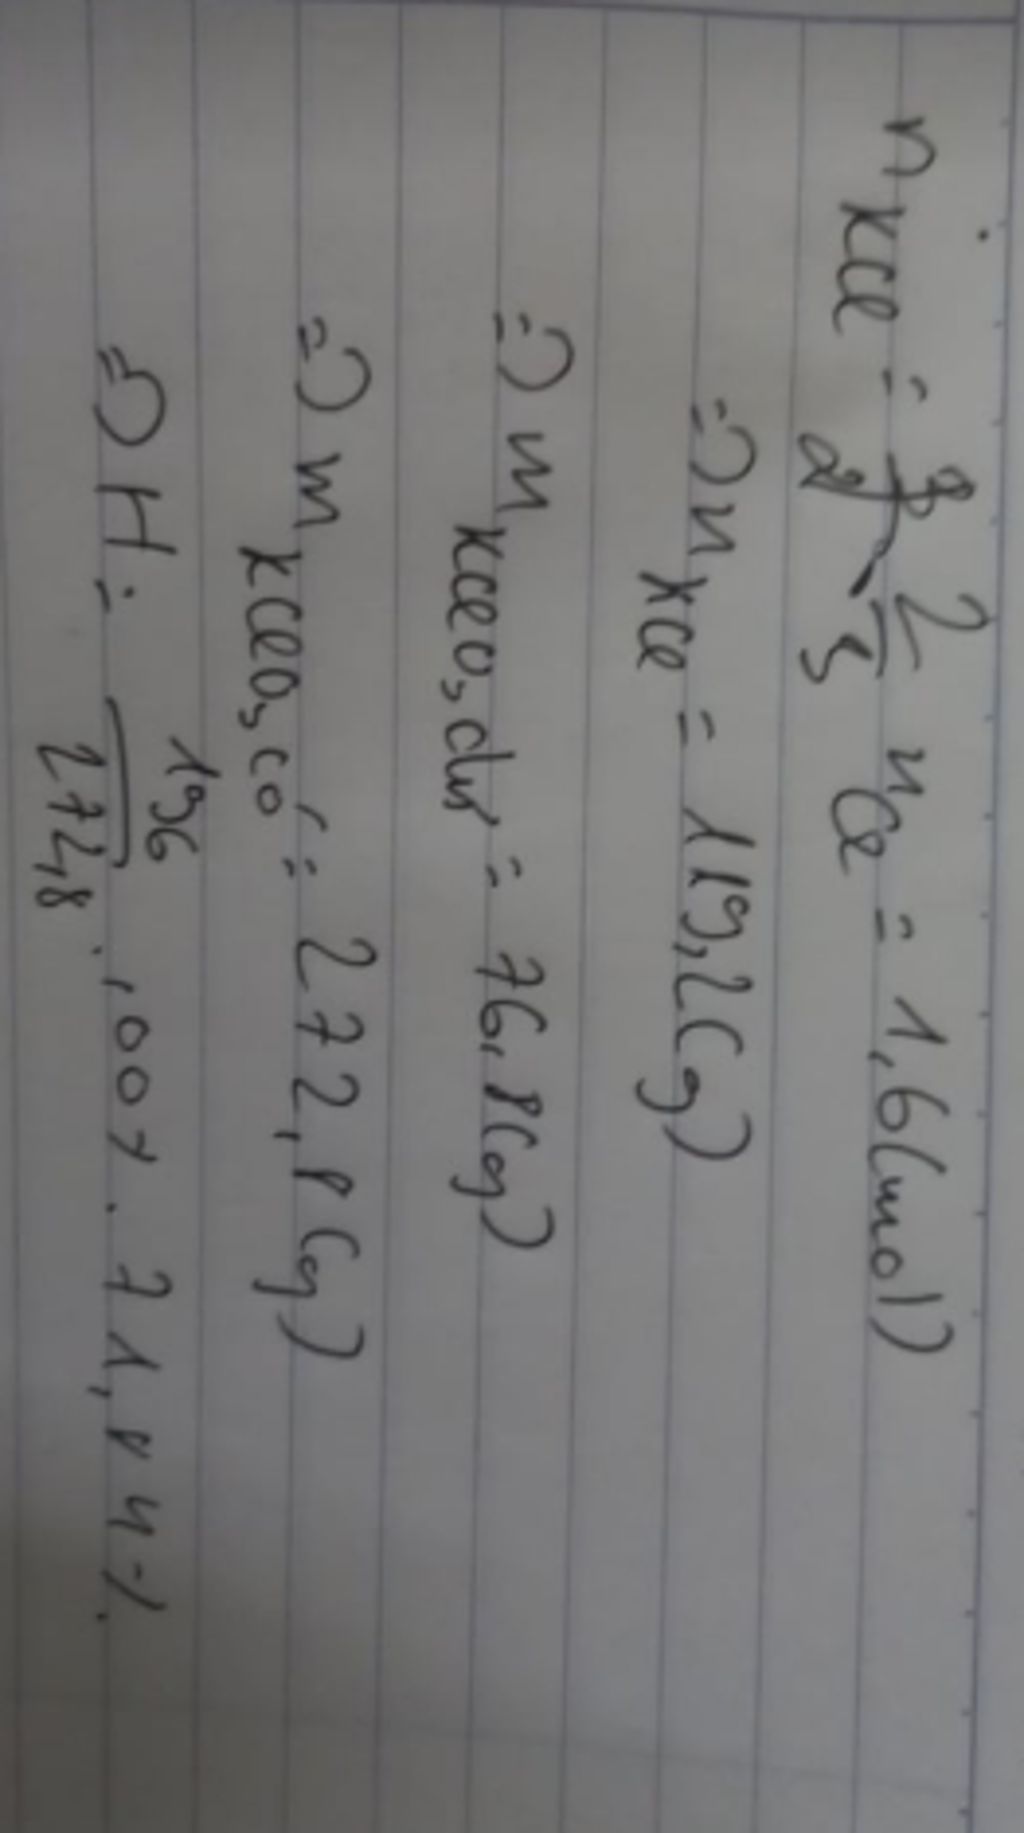 n KCl = 2/5 n Cl2 = 1,6 (mol)
=> m KCl = 119,2 (g)
=> m KClO3 dư = 76,8 (g)
=> m KClO3 có = 272,8 (g)
=> H = 196/272,8 . 100% = 71,84%